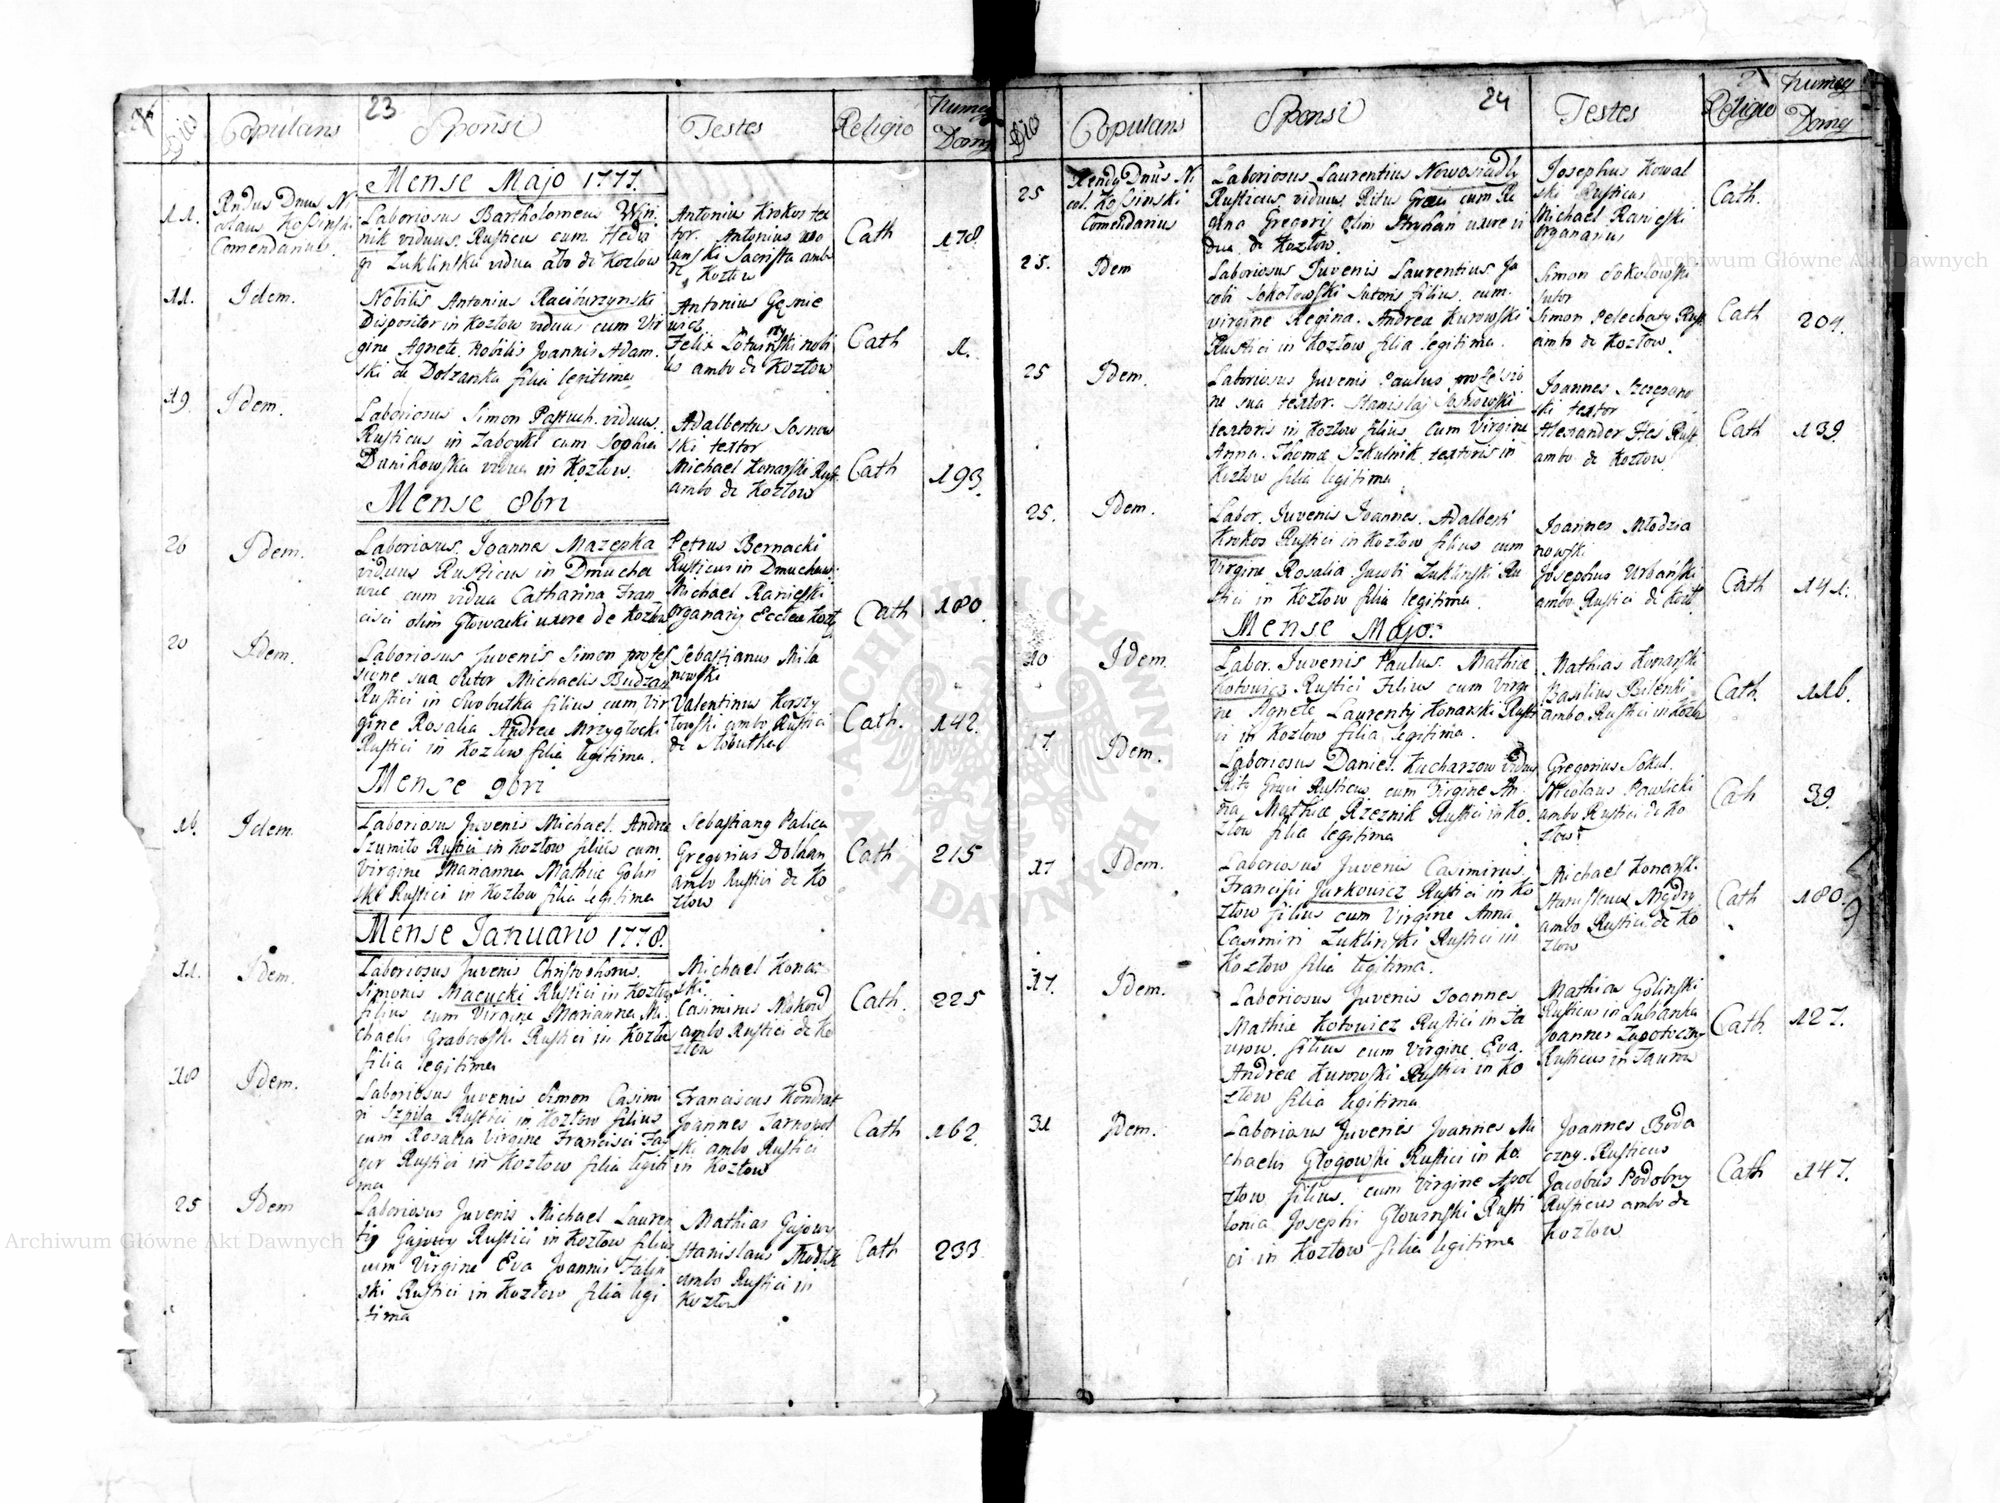 23
Dio
Copulans
Sponsi
Testes
Religio
Numeg
Domg
Mense Majo 1777.
11.
Rndus Dnus Ni
colaus Kossinski
Comendarius.
Laboriosus Bartholomeus
nik viduus. Rusticus cum Hedvi
gi Zuklinska vidua abo de Kozlow
Antonius Krokos tex
tor. Antonius wo
lanski Sacrista ambo
de Kozlow
Cath
178.
11.
Idem.
Nobilis Antonius Raciburzynski
Dispositor in Kozlow viduus cum Vir
gine Agnete. Nobilis Joannis Adam.
ski de Dolzanka filia legitima
Antonius Gęsnie
wicz
Felix nobi
lis ambo de Kozłow
Cath
1.
19.
Idem.
Laboriosus Simon Pastuch. viduus.
Rusticus in Zaboyki cum Sophia
Danikowska vidua in Kozłow.
Adalbertus Sosnow
ski textor
Michael Konarski Rust.
ambo de Kozłow
Cath
193.
Mense 8bri
26
Idem.
Laboriosus. Joannes Mazepka
viduus Rusticus in Dmucha
wce cum vidua Catharina Fran
cisci olim Głowacki uxore de Kozlow
Petrus Bernacki
Rusticus in Dmuchaw.
Michael Ranieski
organariq Eccleae Kozł
Cath
180.
20
Idem.
Laboriosus Juvenis Simon profes
sione sua Sutor Michaelis Budzan
Rustici in Slobutka filius cum Vir
gine Rosalia Andrea Mrzygłocki
Rustici in Kozlow filia legitima.
Sebastianus Mila
nowski
Valentinus Korzy
towski ambo Rustici
de Slobutka
Cath.
142.
Mense 9bri
16.
Idem.
Laboriosus Juvenis Michael. Andrea
Szumilo Rustici in Kozłow filius cum.
Virgine Marianna Mathiæ Golin
ski Rustici in Kozłow filia legitima
Sebastianq Palica
Gregorius Dolhan
ambo Rustici de Ko
złow
Cath
215
Mense Januario 1778.
11.
Idem.
Laboriosus Juvenis Christophorus.
Simonis Macucki Rustici in Kozłow
filius cum Virgine Marianna Mi
chaelis Grabowski Rustici in Kozłow
filia legitima
Michael Konar
ski.
Casimirus Mokrod
ambo Rustici de Ko
złow
Cath.
225
18
Idem.
Laboriosus Juvenis Simon Casimi
ri Szpila Rustici in Kozłow filius
cum Rosalia Virgine Francisci Ja
ger Rustici in Kozłow filia legiti
ma
Franciscus Kondrat
Joannes Tarnopol
ski ambo Rustici
in Kozłow
Cath
162.
25
Idem
Laboriosus Juvenis Michael Lauren
tij Gajowy Rustici in Kozłow filius
cum Virgine Eva Joannis Falin
ski Rustici in Kozłow filia legi
tima
Mathias Gajowy
Stanislaus
ambo Rustici in
Kozłow
Cath
233.
24
Dio
Copulans
Sponsi
Testes
Religio
Numeg
Domg
25
Rendq Dnus Ni
col. Kossinski
Comendarius
Laboriosus Laurentius Nowosiadly
Rusticus viduus. Ritus Græci cum Re
gina Gregorij olim Stryhan uxore vi
dua de Kozłow.
Josephus Kowal
ski Rusticus
Michael Ranieski
Organarius
Cath.
25.
Idem
Laboriosus Juvenis Laurentius. Ja
cobi Sokołowski Sutoris filius. cum.
virgine Regina. Andrea Kurowski
Rustici in Kozłow filia legitima.
Simon Sokolowski
Sutor
Simon Pelechaty Rust.
ambo de Kozłow.
Cath
204.
25
Idem.
Laboriosus Juvenis Paulus professio
ne sua textor. Stanislaj Sosnowski
textoris in Kozłow filius. Cum Virgine
Anna. Thomæ Szkulnik textoris in
Kozłow filia legitima
Joannes Szczepano
ski textor
Alexander Hes Rust.
ambo de Kozłow
Cath
139.
25.
Idem.
Labor. Juvenis Joannes. Adalberti
Krokos Rustici in Kozłow filius cum
Virgine Rosalia Jacobi Zuklinski Ru
stici in Kozłow filia legitima.
Joannes Młodzia
nowski
Josephus Urbański
ambo Rustici de Kozł
Cath
141.
Mense Majo.
10
Idem.
Labor. Juvenis Paulus. Mathiæ
Kotowicz Rustici Filius cum Virgi
ne Agnete Laurentij Konarski Rusti
ci in Kozłow filia legitima.
Mathias Konarski
Basilius Bilenki
ambo Rustici in Kozłow
Cath.
116.
17.
Idem.
Laboriosus Daniel. Kucharzow viduus
Rits Græci Rusticus cum Virgine An.
na Mathiæ Rzeznik Rustici in Ko.
złow filia legitima
Gregorius Sokal.
Nicolaus Pawlicki
ambo Rustici de Ko
złow
Cath
39.
17
Idem.
Laboriosus Juvenis Casimirus.
Francisci Jurkowicz Rustici in Ko
złow filius cum Virgine Anna
Casimiri Zuklinski Rustici in
Kozłow filia legitima.
Michael Konarski
Stanislaus Mędry
ambo Rustici de Ko
złow
Cath
180.
17.
Idem.
Laboriosus Juvenis Joannes
Mathiæ Kotowicz Rustici in Ja
wrow. filius cum Virgine. Eva.
Andreæ Kurowski Rustici in Ko
złow filia legitima
Mathias Golinski
Rusticus in Lubianka
Joannes Zapotoczny
Rusticus in Jaurow
Cath
127.
31
Idem.
Laboriosus Juvenes Joannes Mi
chaelis Głogowski Rustici in Ko
złow filius. cum Virgine Apol
lonia Josephi Głowinski Rusti
ci in Kozłow filia legitima
Joannes Boda
czny. Rusticus
Jacobus Podobny
Rusticus ambo de
Kozłow
Cath
147.
Archiwum Główne Akt Dawnych
Archiwum Główne Akt Dawnych
ARCHIWUM GŁÓWNE AKT DAWNYCH